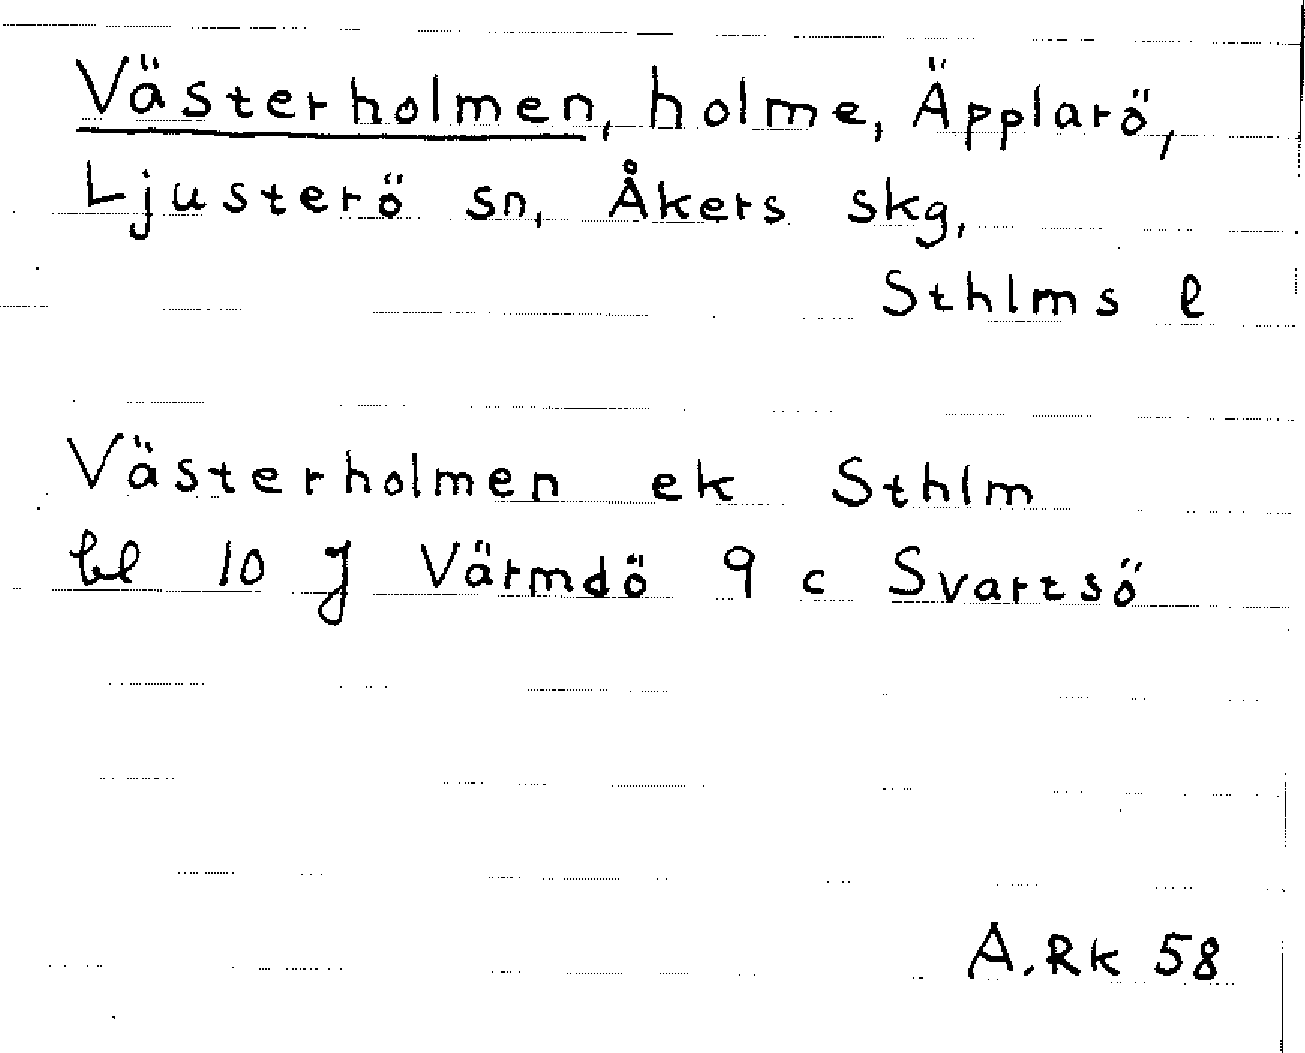 Västerholmen, holme, Äpplarö,
Ljusterö sn, Åkers skg,
Sthlms l
Västerholmen ek Sthlm
bl 10 J Värmdö 9 c Svartsö
A. Rk 58